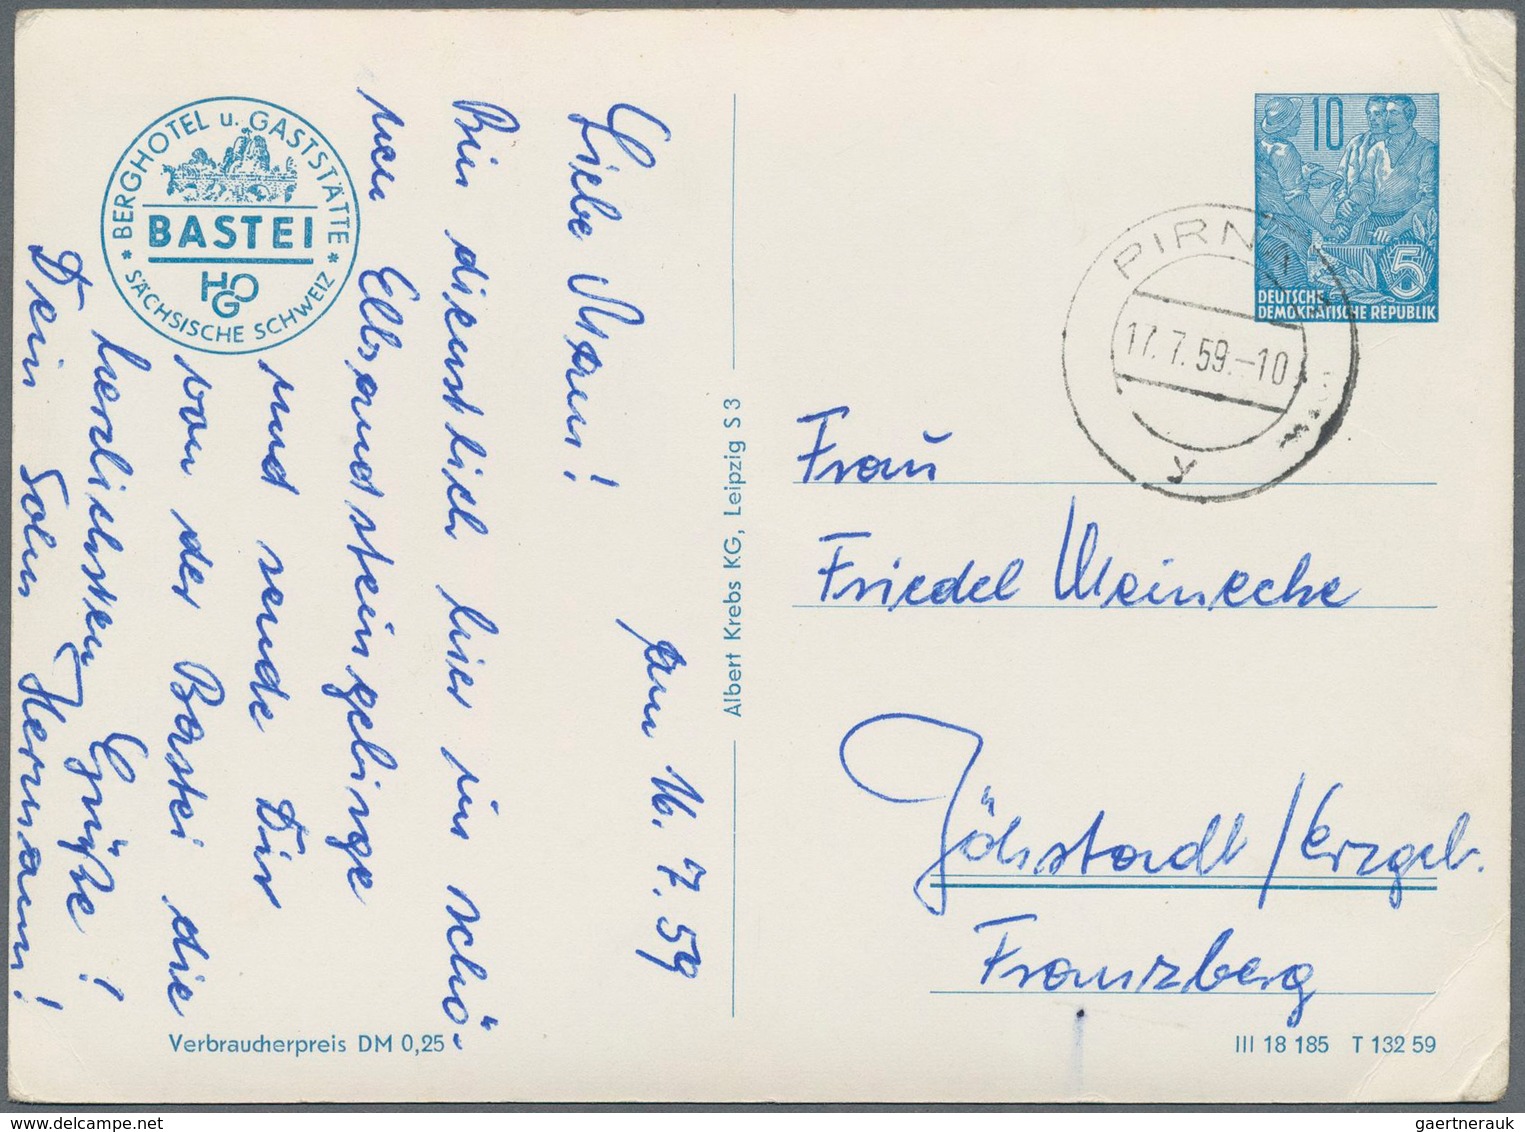 BERGHOTEL u. GASTSTÄTTE
BASTEI
HOG
* SÄCHSISCHE SCHWEIZ *
am 16. 7. 59
Liebe Mam!
Bin dienstlich hier im schö-
nen Elbsandsteingebirge
und sende Dir
von der Bastei die
herzlichsten Grüße!
Dein Sohn Hermann!
Verbraucherpreis DM 0,25
Albert Krebs KG, Leipzig S 3
10
5
DEUTSCHE
DEMOKRATISCHE REPUBLIK
PIRNA
17. 7. 59.-10
y
Frau
Friedel Meinecke
Jöhstadt / Erzgeb.
Franzberg
III 18 185 T 132 59
gaertnerauk